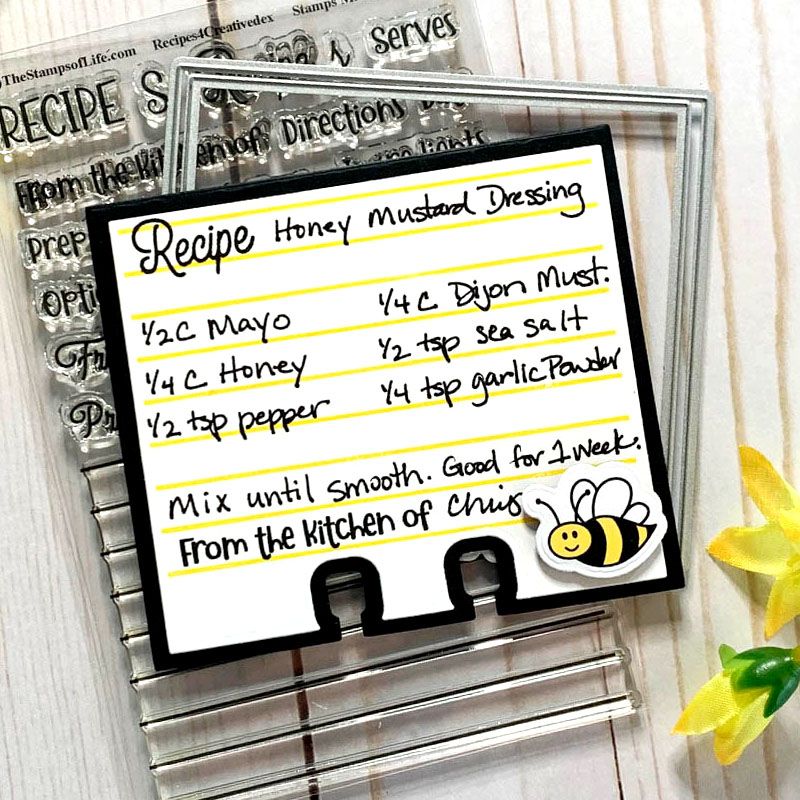 TheStampsofLife.com Recipes4Creativedex Stamps M
RECIPE S Serves
From the kitchen of: Directions
Prep
Recipe Honey Mustard Dressing
1/2 C Mayo 1/4 C Dijon Must.
1/4 C Honey 1/2 tsp sea salt
1/2 tsp pepper 1/4 tsp garlic Powder
Mix until smooth. Good for 1 week.
From the kitchen of Chris